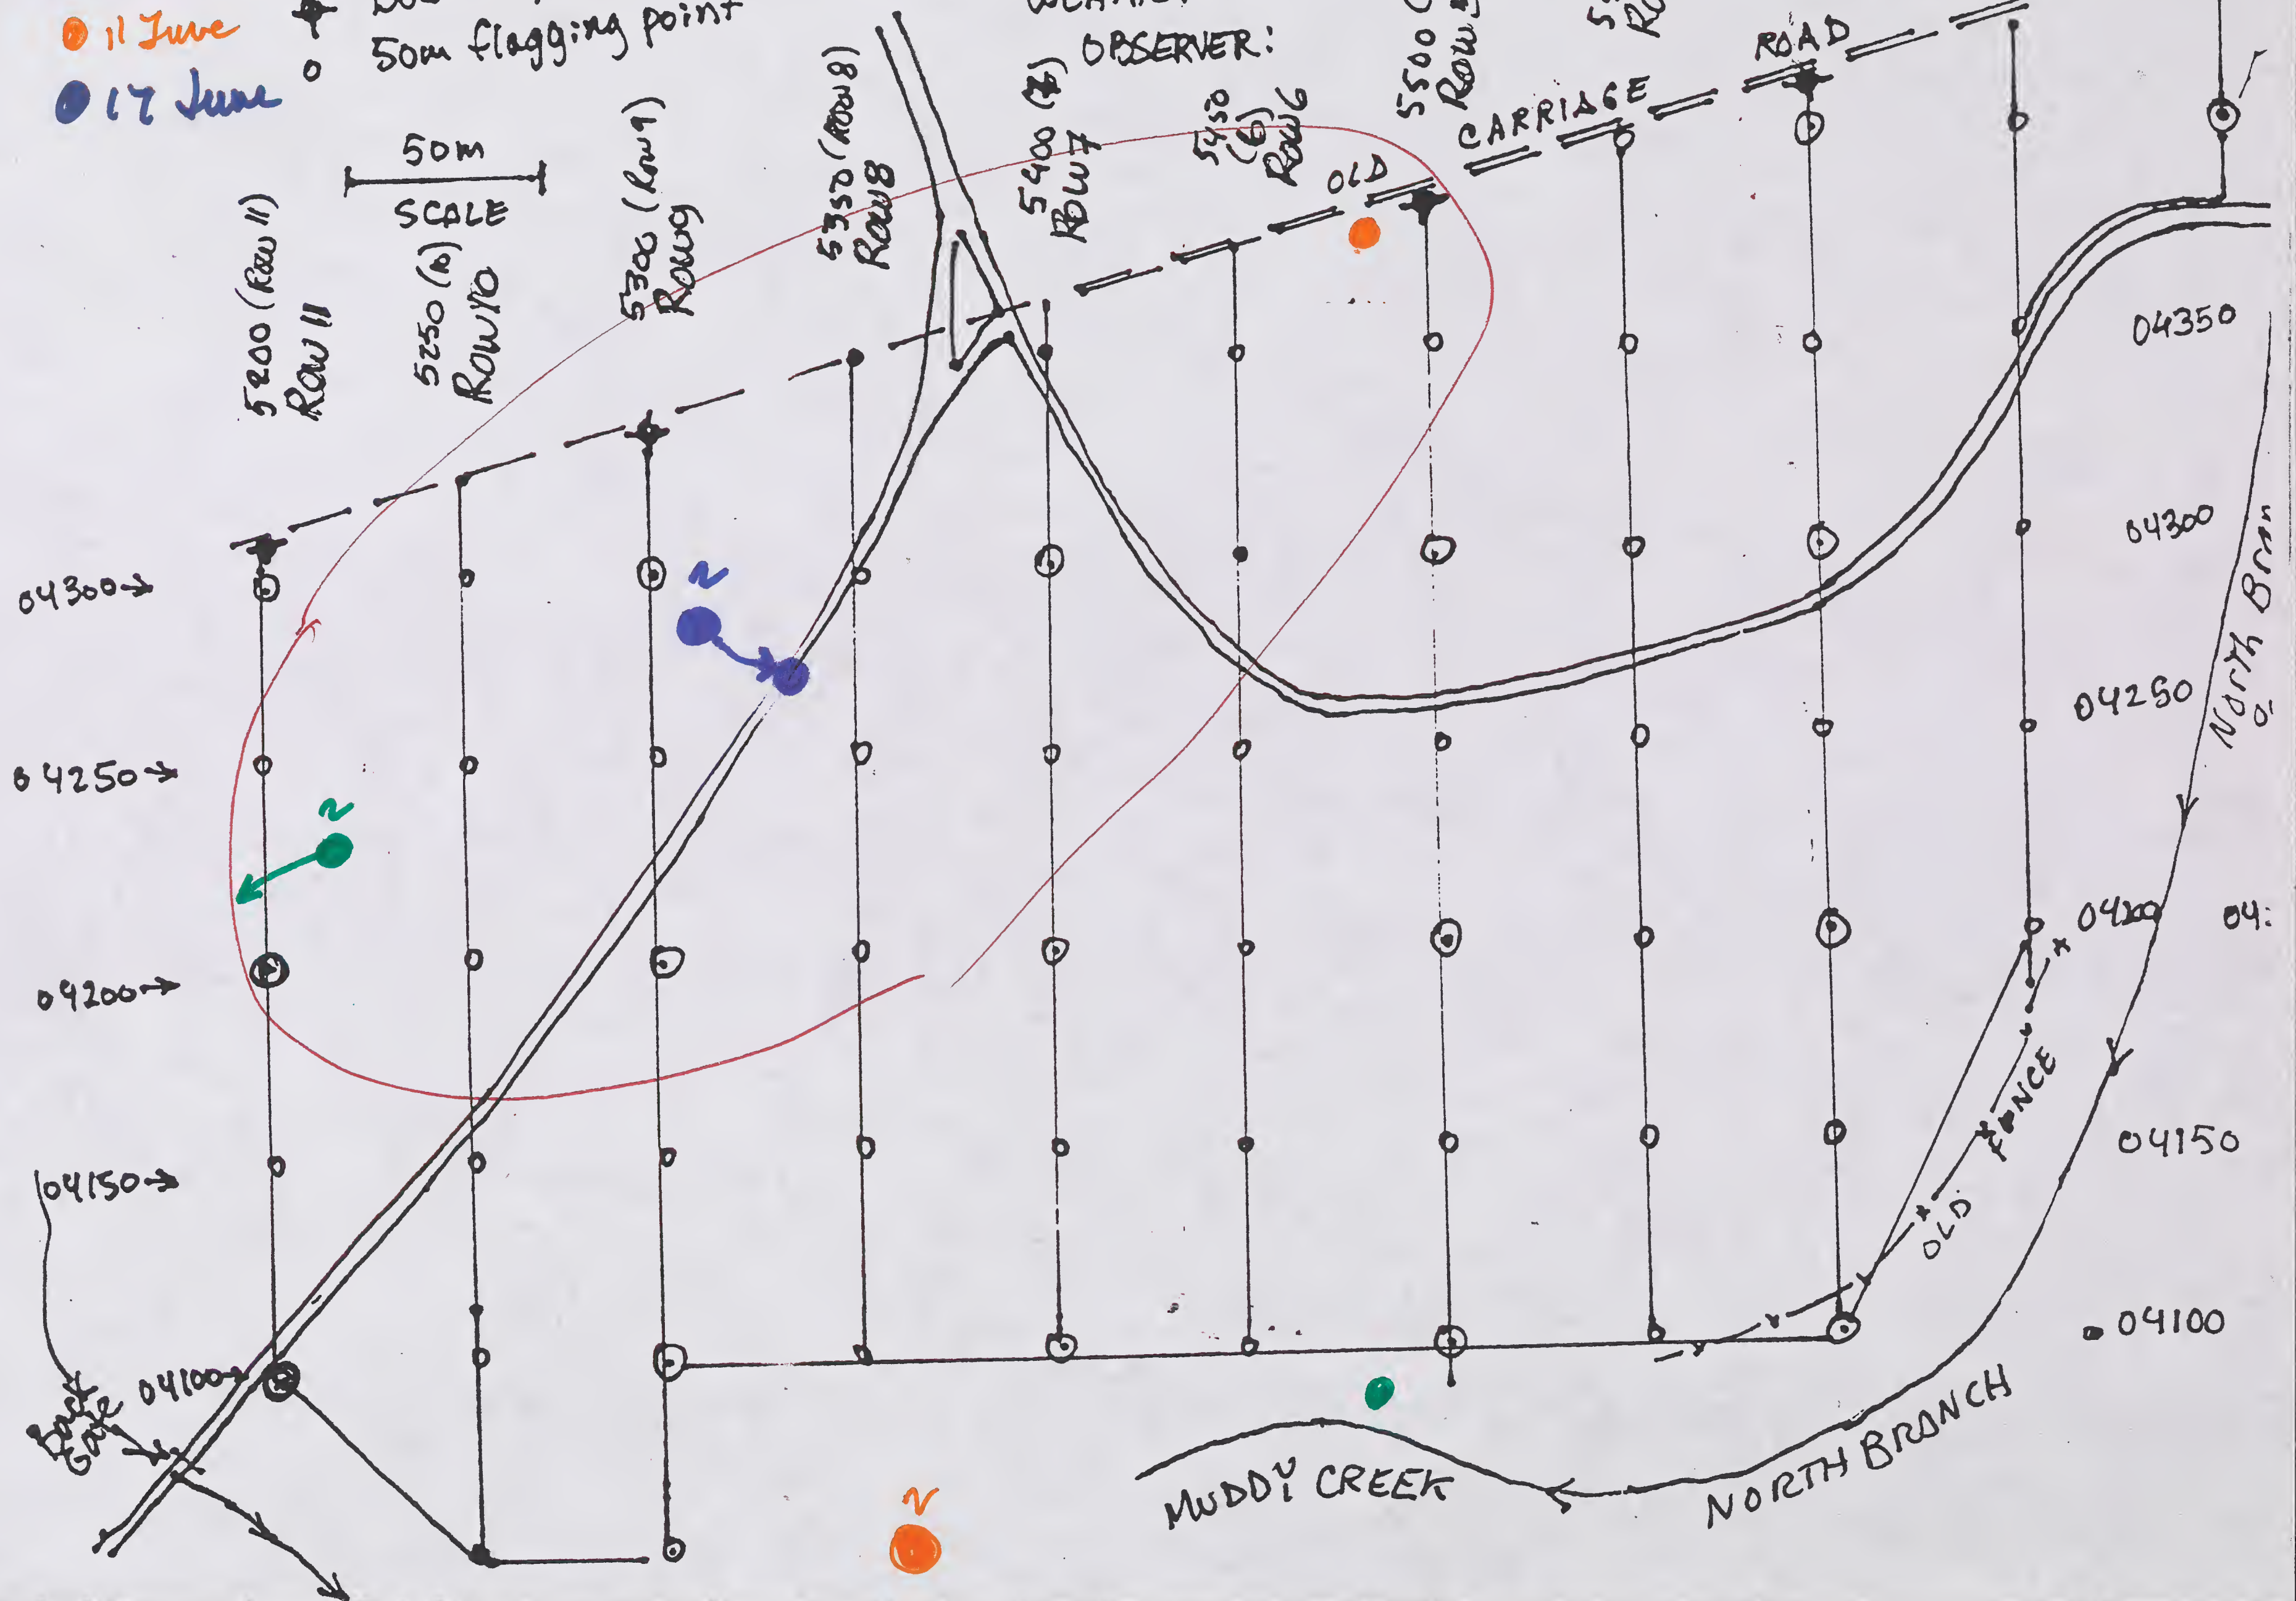 11 June
50m flagging point
17 June
OBSERVER:
50m
SCALE
5200 (Row 11)
Row 11
5250 (10)
Row 10
5300 (Row 9)
Row 9
5350 (Row 8)
Row 8
5400 (7)
Row 7
5450
(6)
Row 6
5500
Row
OLD
CARRIAGE
ROAD
04350
04300
04250
04200
04:
04150
04100
04300→
04250→
04200→
04150→
04100→
Back
Gate
N
N
N
OLD
FENCE
North Bran
MUDDY CREEK
NORTH BRANCH